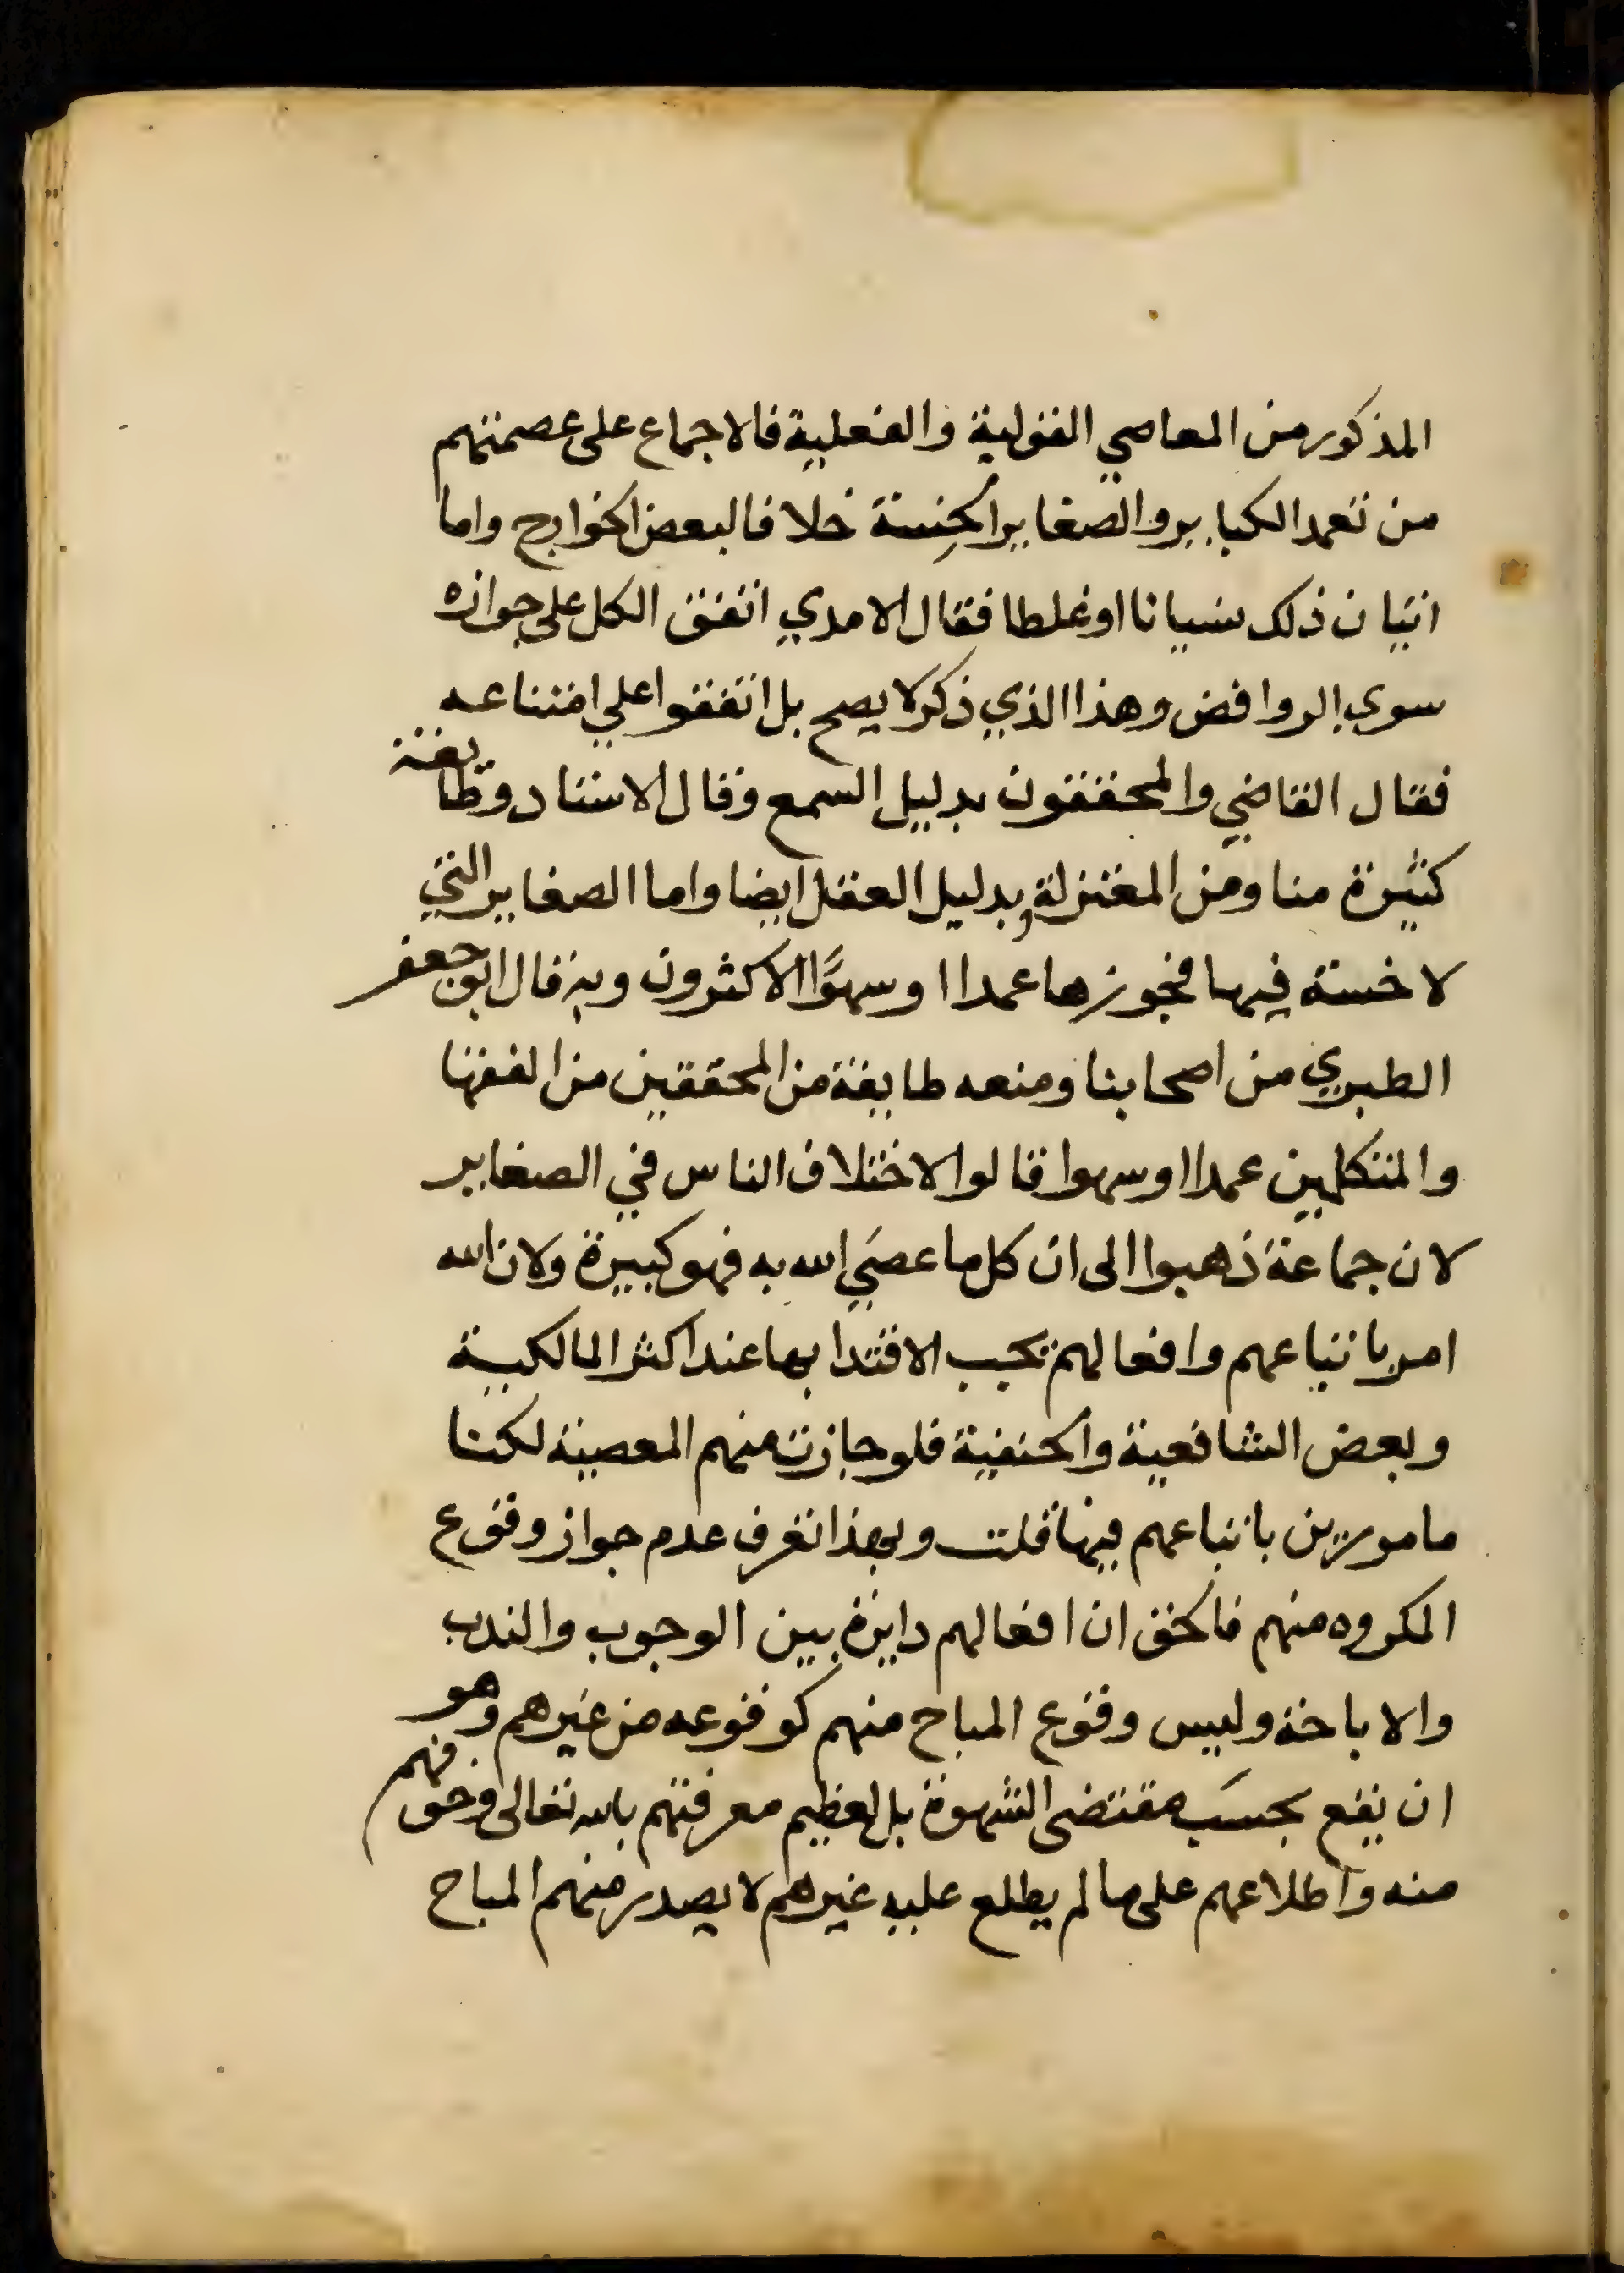 المذكور من المعاصي القولية والفعلية فالاجماع على عصمتهم
من تعمد الكباير والصغاير الخسة خلافا لبعض الخوارج واما
اتيان ذلك نسيانا او غلطا فقال الامدي اتفق الكل على جوازه
سوي الروافض وهذا الذي ذكر لا يصح بل اتفقوا علي امتناعه
فقال القاضي والمحققون بدليل السمع وقال الاستاد وطايفة
كثيرة منا ومن المعتزلة وبدليل العقل ايضا واما الصغاير التي
لا خسة فيها فجوزها عمدا او سهوًا الاكثرون وبه قال ابو جعفر
الطبري من اصحابنا ومنعه طايفة من المحققين من الفقها
والمتكلمين عمدا او سهوا قالوا لاختلاف الناس في الصغاير
لان جماعة ذهبوا الى ان كل ما عصي الله به فهو كبيرة ولان الله
امر باتباعهم وافعالهم يجب الاقتدا بها عند اكثر المالكية
وبعض الشافعية والحنفية فلو جازت منهم المعصية لكنا
مامورين باتباعهم فيها قلت وبهذا تعرف عدم جواز وقوع
المكروه منهم فالحق ان افعالهم دايرة بين الوجوب والندب
والاباحة وليس وقوع المباح منهم كوقوعه من غيرهم وهو
ان يقع بحسب مقتضى الشهوة بل لعظيم معرفتهم بالله تعالى وخوفهم
منه واطلاعهم على ما لم يطلع عليه غيرهم لا يصدر منهم المباح